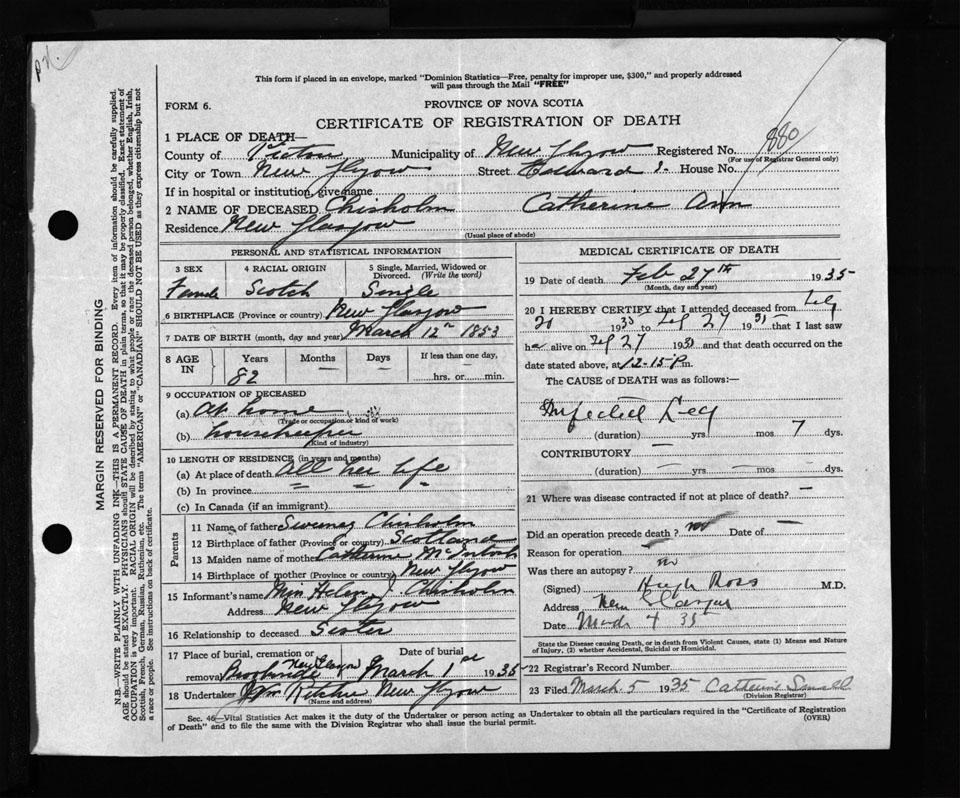 This form if placed in an envelope, marked "Dominion Statistics—Free, penalty for improper use, $300," and properly addressed
will pass through the Mail "FREE"
FORM 6.
PROVINCE OF NOVA SCOTIA
CERTIFICATE OF REGISTRATION OF DEATH
1 PLACE OF DEATH—
County of Pictou Municipality of New Glasgow Registered No. 880
(For use of Registrar General only)
City or Town New Glasgow Street House No.
If in hospital or institution, give name
2 NAME OF DECEASED Chisholm Catherine Ann
Residence New Glasgow
(Usual place of abode)
PERSONAL AND STATISTICAL INFORMATION
3 SEX 4 RACIAL ORIGIN 5 Single, Married, Widowed or Divorced. (Write the word)
Female Scotch Single
6 BIRTHPLACE (Province or country) New Glasgow
7 DATE OF BIRTH (month, day and year) March 12th 1853
8 AGE IN Years Months Days If less than one day,
82 — — hrs. or min.
9 OCCUPATION OF DECEASED
(a) At home
(Trade or occupation or kind of work)
(b) housekeeper
(Kind of industry)
10 LENGTH OF RESIDENCE (in years and months)
(a) At place of death All her life
(b) In province " " "
(c) In Canada (if an immigrant)
Parents
11 Name of father Chisholm
12 Birthplace of father (Province or country) Scotland
13 Maiden name of mother Catherine McIntosh
14 Birthplace of mother (Province or country) New Glasgow
15 Informant's name Miss Helen J. Chisholm
Address New Glasgow
16 Relationship to deceased Sister
17 Place of burial, cremation or removal Date of burial
New Glasgow March 1st 1935
18 Undertaker New Glasgow
(Name and address)
MEDICAL CERTIFICATE OF DEATH
19 Date of death Feb 27th 1935
(Month, day and year)
20 I HEREBY CERTIFY that I attended deceased from Feb
20 1935 to Feb 27 1935 that I last saw
her alive on Feb 27 1935 and that death occurred on the
date stated above, at 12-15 P m.
The CAUSE of DEATH was as follows:—
Infected Leg
(duration) yrs mos 7 dys.
CONTRIBUTORY —
(duration) — yrs. — mos — dys.
21 Where was disease contracted if not at place of death? —
Did an operation precede death? no Date of —
Reason for operation —
Was there an autopsy? no
(Signed) Hugh Ross M.D.
Address New Glasgow
Date March 4 35
State the Disease causing Death, or in death from Violent Causes, state (1) Means and Nature
of Injury, (2) whether Accidental, Suicidal or Homicidal.
22 Registrar's Record Number
23 Filed March 5 1935 Catherine
(Division Registrar)
Sec. 46—Vital Statistics Act makes it the duty of the Undertaker or person acting as Undertaker to obtain all the particulars required in the "Certificate of Registration
of Death" and to file the same with the Division Registrar who shall issue the burial permit. (OVER)
MARGIN RESERVED FOR BINDING
N.B.—WRITE PLAINLY WITH UNFADING INK—THIS IS A PERMANENT RECORD. Every item of information should be carefully supplied.
AGE should be stated EXACTLY. PHYSICIANS should STATE CAUSE OF DEATH in plain terms, so that it may be properly classified. Exact statement of
OCCUPATION is very important. RACIAL ORIGIN will be described by stating to what people or race the deceased person belonged, whether English, Irish,
Scottish, French, German, Russian, Ruthenian, etc. The terms "AMERICAN" or "CANADIAN" SHOULD NOT BE USED as they express citizenship but not
a race or people. See instructions on back of certificate.